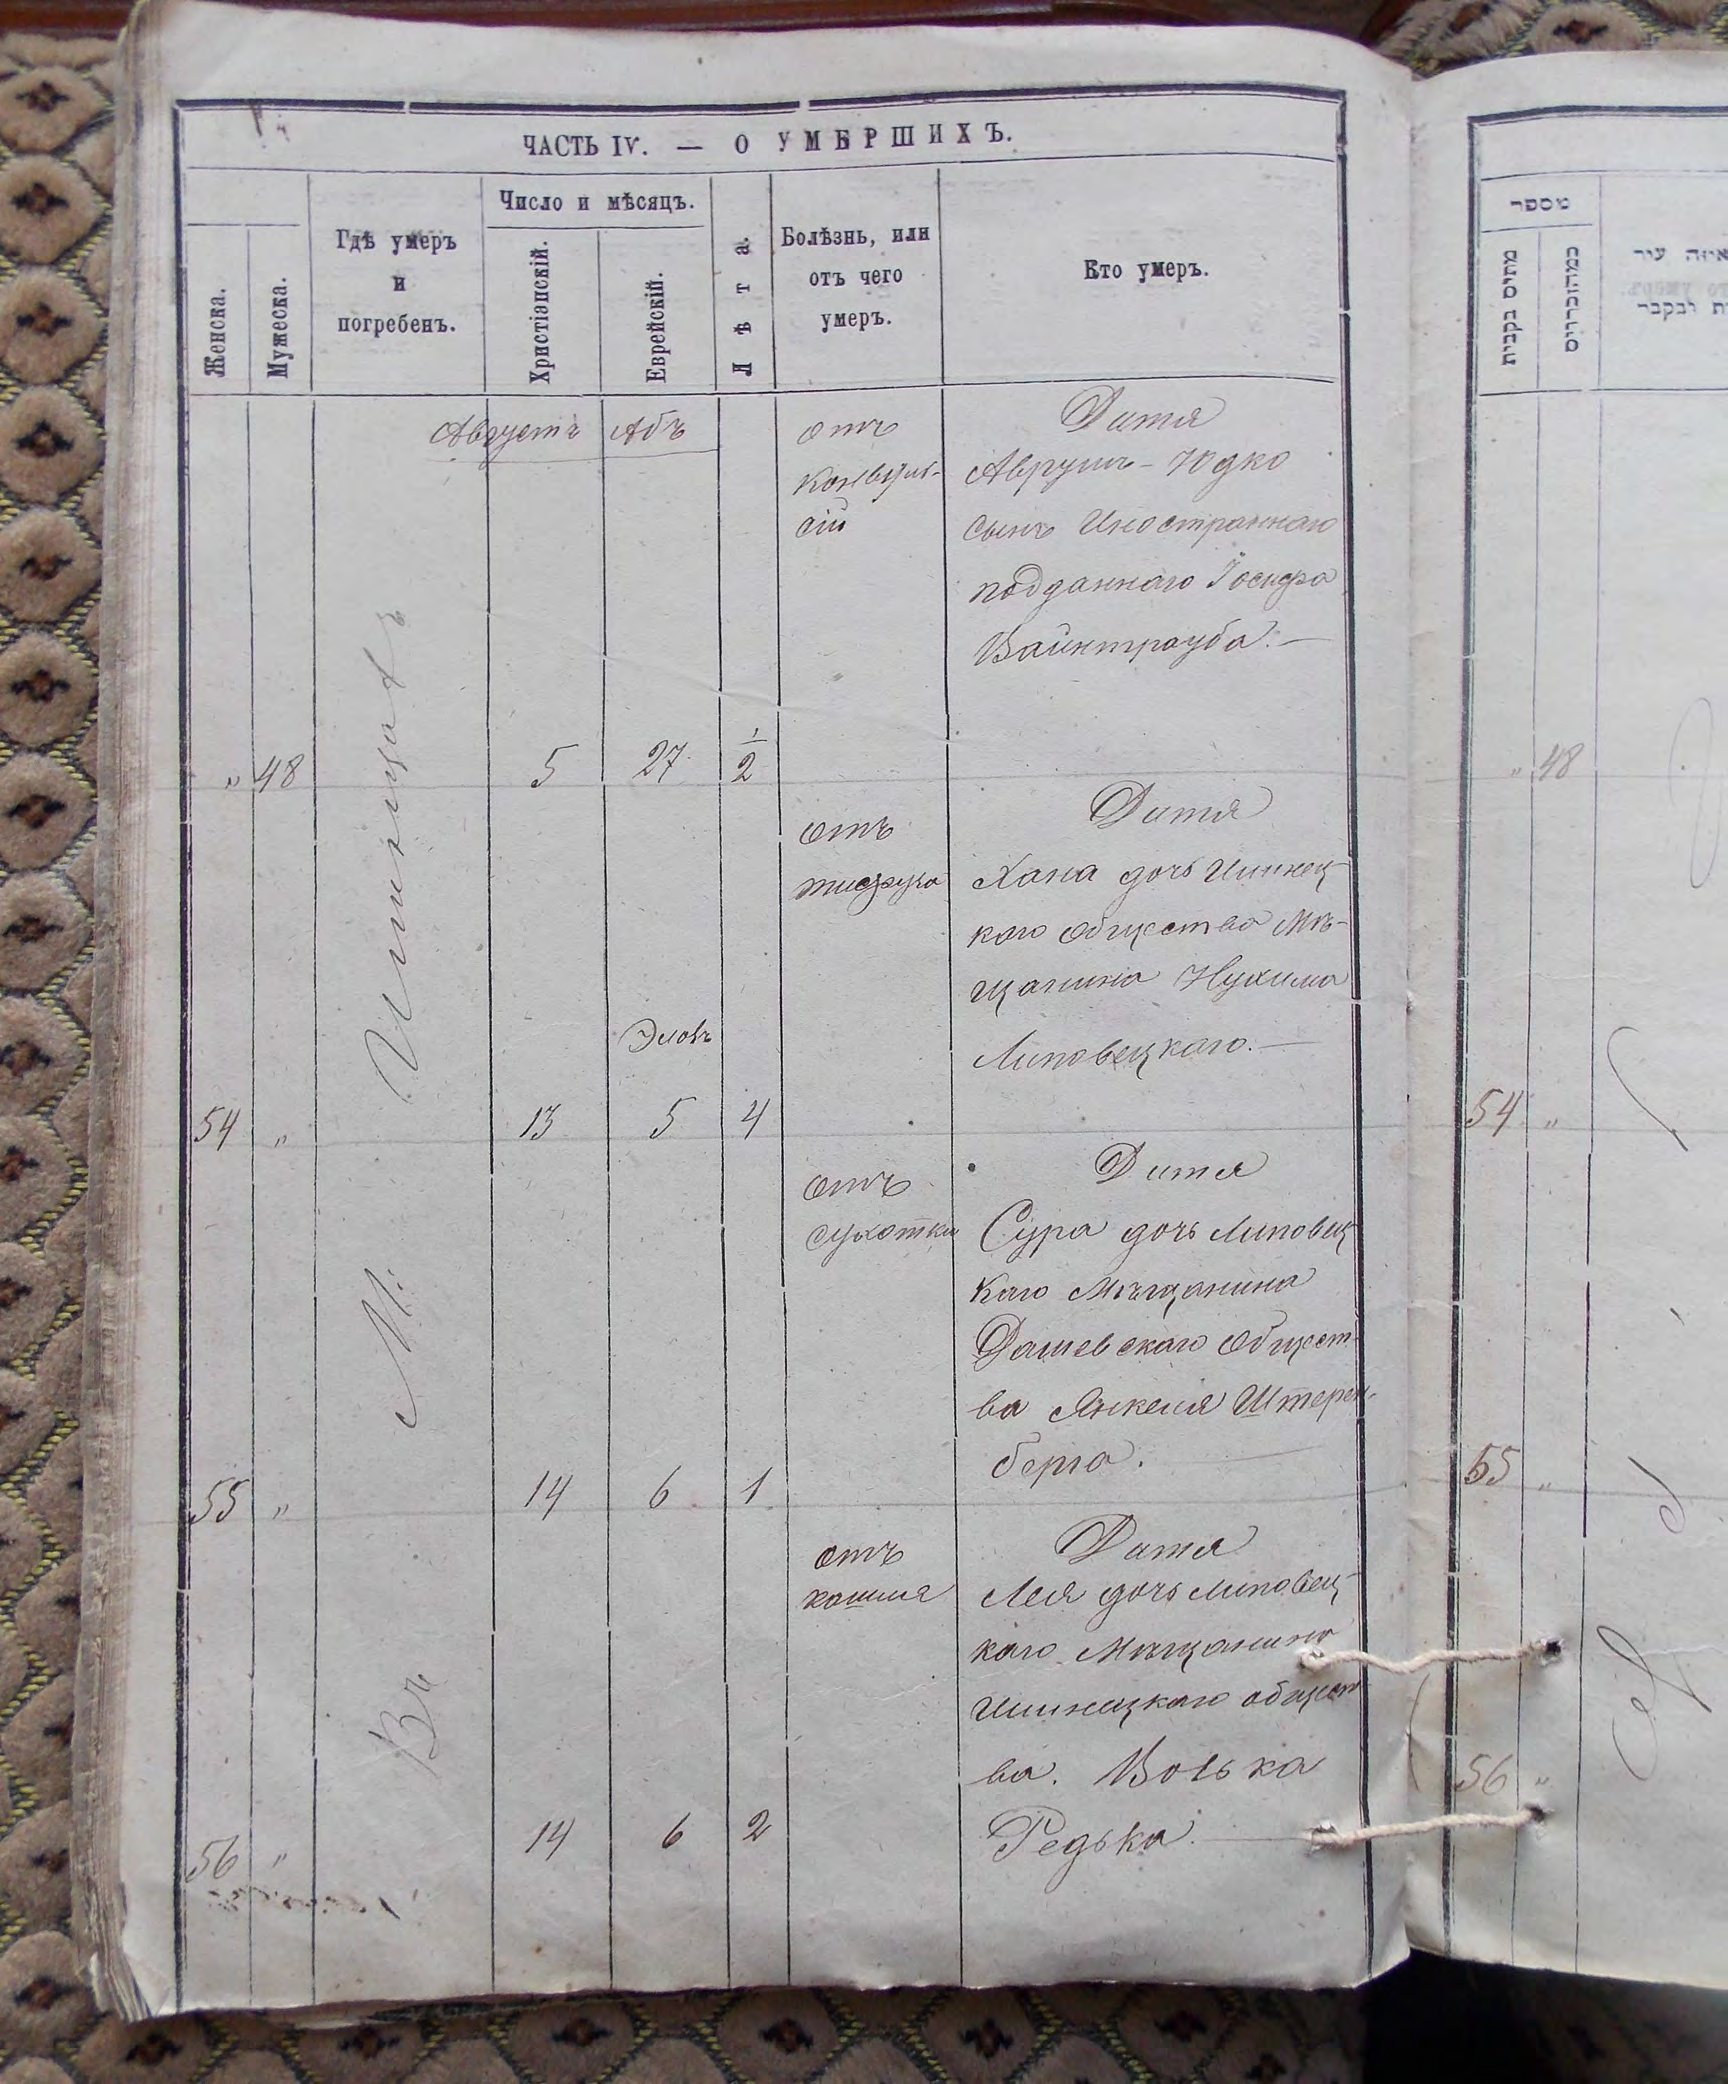 ЧАСТЬ IV. — О УМЕРШИХЪ.
Женска.
Мужеска.
Гдѣ умеръ
и
погребенъ.
Число и мѣсяцъ.
Христіанскій.
Еврейскій.
Лѣта.
Болѣзнь, или
отъ чего
умеръ.
Кто умеръ.
Августъ Абъ
Въ М. Ильинцахъ
отъ
конвуль-
сій
Дитя
Аврумъ-Юдко
сынъ Иностраннаго
подданнаго Іосифа
Вайнтрауба. —
" 48 5 27 1/2
отъ
тифуса
Дитя
Хана дочь Илинец-
каго общества Мѣ-
щанина Нухима
Липовецкаго. —
Элюлъ
54 " 13 5 4
отъ
сухотки
Дитя
Сура дочь Липовец-
каго Мѣщанина
Дашевскаго Общест-
ва Янкеля Штерен-
берга.
55 " 14 6 1
отъ
кашля
Дитя
Лея дочь Липовец-
каго Мѣщанина
Илинецкаго общест-
ва. Волька
Редька. —
56 " 14 6 2
מספר
מתים נקבות
כמה זכרים
איזה עיר
ת ונקבר
" 48
54 "
55 "
56 "